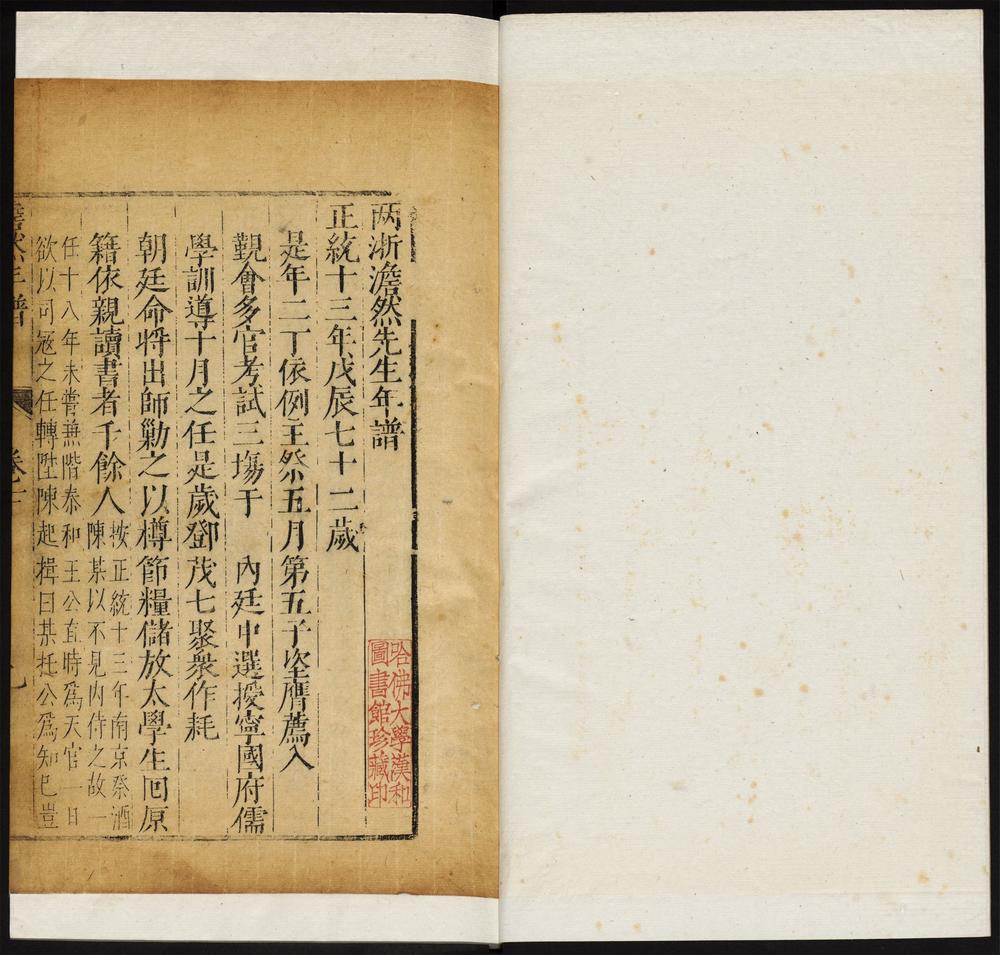 两浙澹然先生年譜
正統十三年戊辰七十二歲
是年二丁依例主祭五月第五子埅膺薦入
覲會多官考試三塲于　內廷中選授寧國府儒
學訓導十月之任是歲鄧茂七聚衆作耗
朝廷命將出師勦之以樽節糧儲放太學生回原
籍依親讀書者千餘人
按正統十三年南京祭酒
陳某以不見內侍之故一
任十八年未嘗無階泰和王公直時爲天官一日
欲以司冦之任轉陞陳起楫曰某托公爲知巳豈
澹然年譜
卷十
九
哈佛大學漢和
圖書館珍藏印